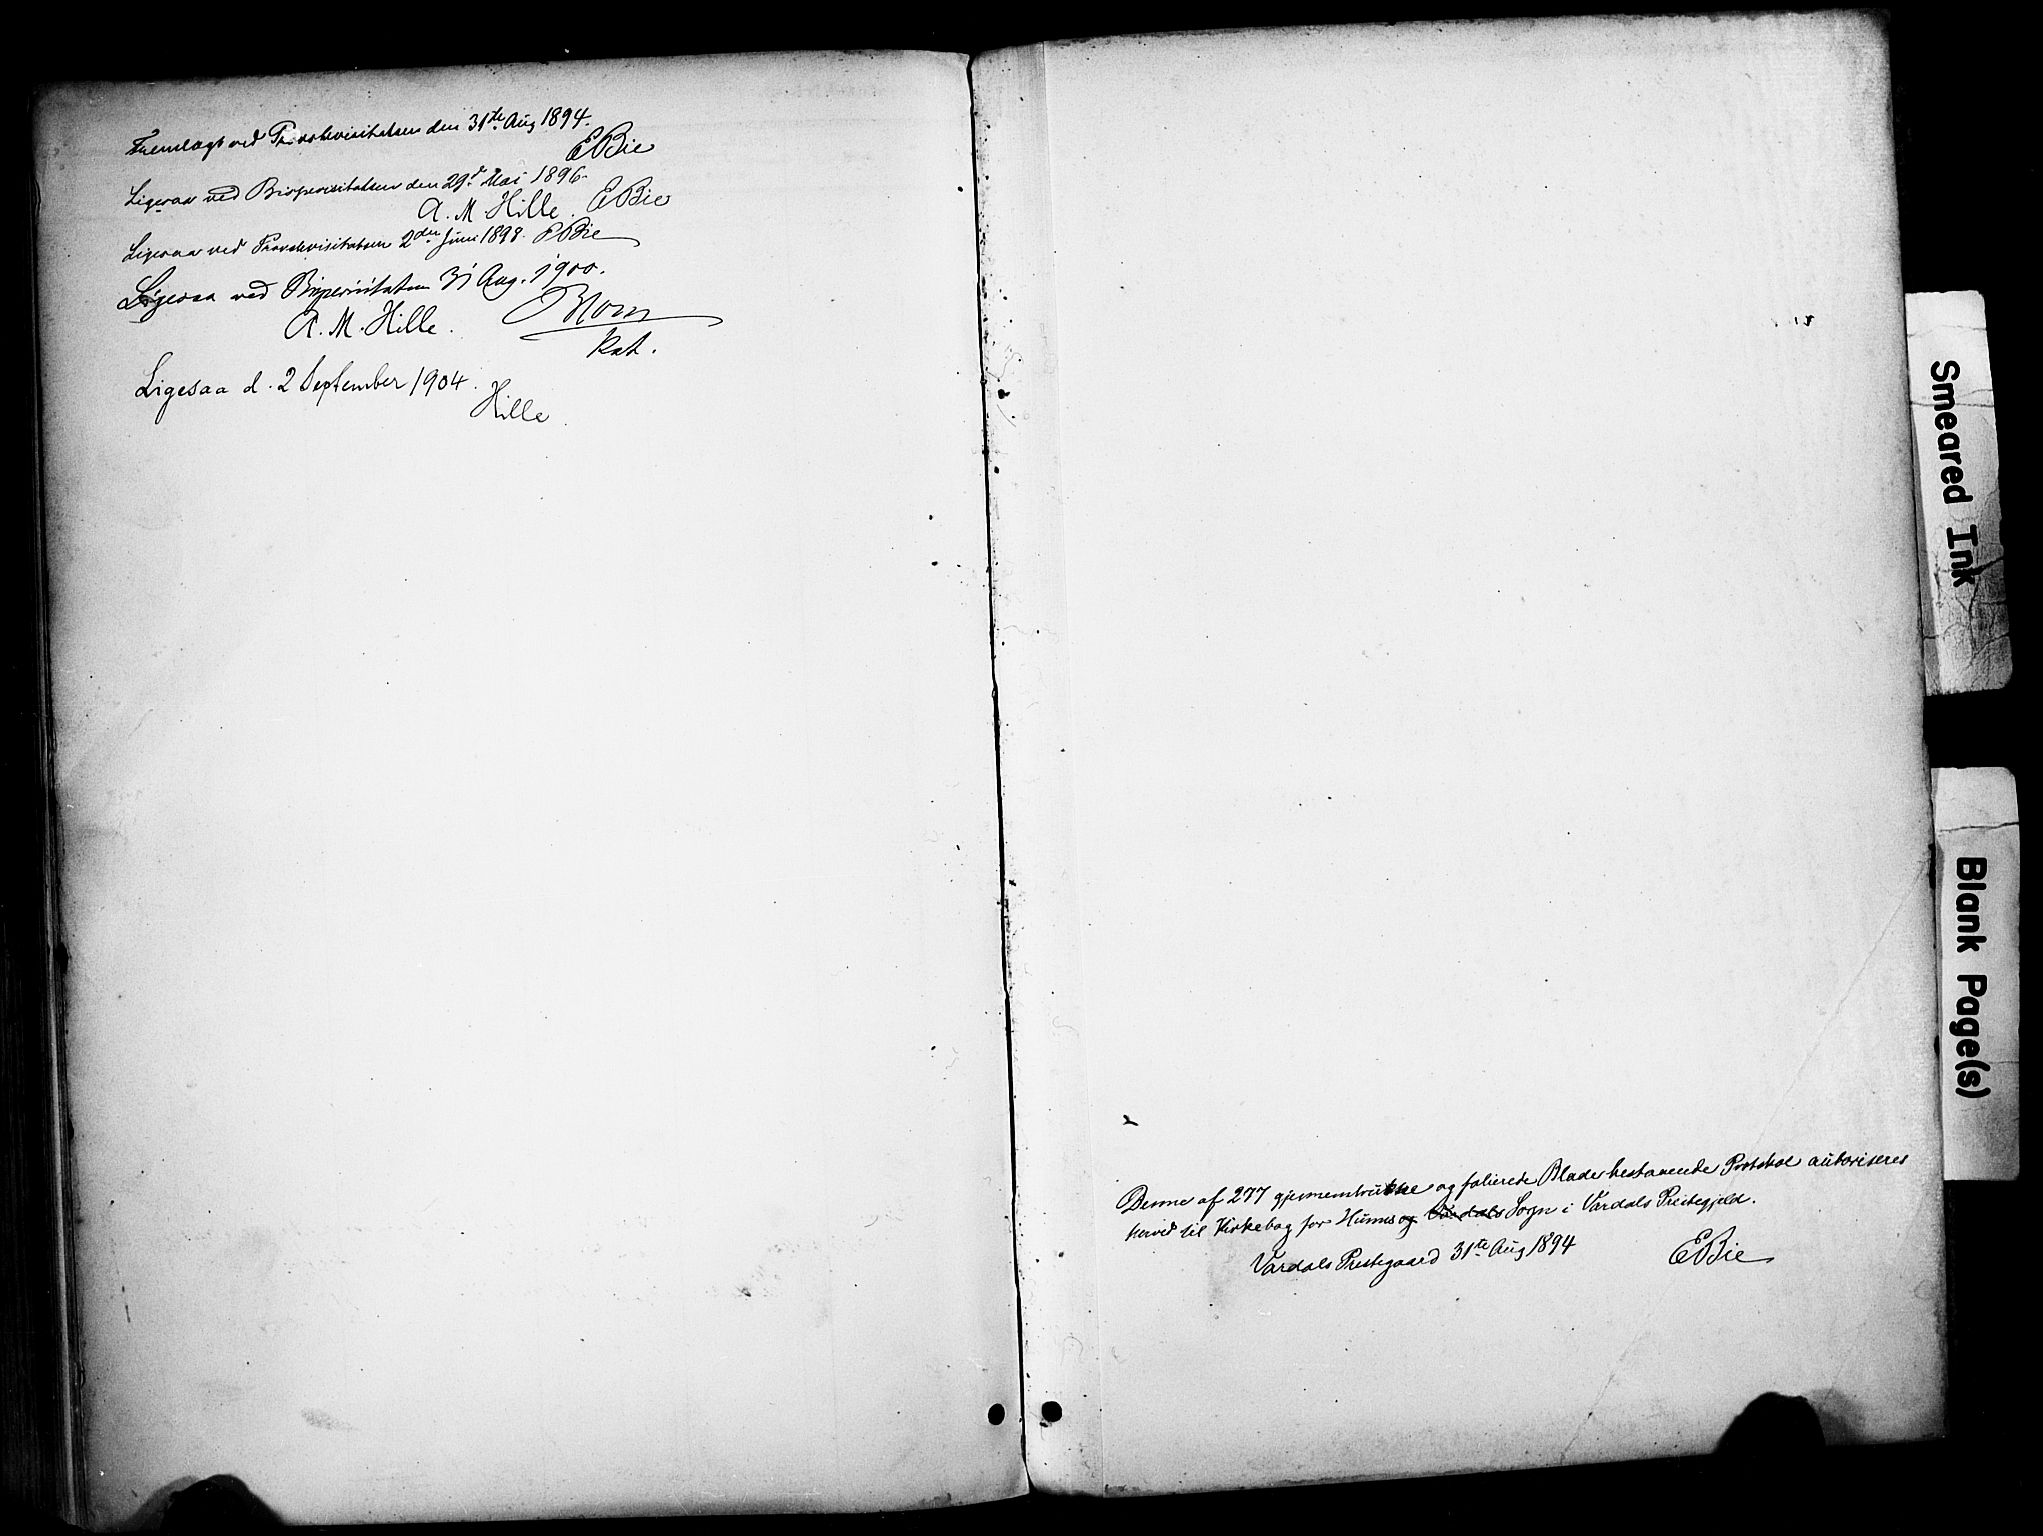 Fremlagt ved Provstevisitatsen den 31te Aug 1894.
EBie
Ligesaa ved Bispevisitatsen den 29d Mai 1896.
A. M. Hille. EBie
Ligesaa ved Provstevisitatsen 2den Juni 1898. EBie
Ligesaa ved Bispevisitatsen 31 Aug. 1900.
A. M. Hille. Blom
kat.
Ligesaa d. 2 September 1904.
Hille
Denne af 277 gjennemtrukne og folierede Blade bestaaende Protokol autoriseres
herved til Kirkebog for Hunns og Vardals Sogn i Vardals Prestegjeld.
Vardals Prestegaard 31te Aug 1894
EBie
Smeared Ink
Blank Page(s)